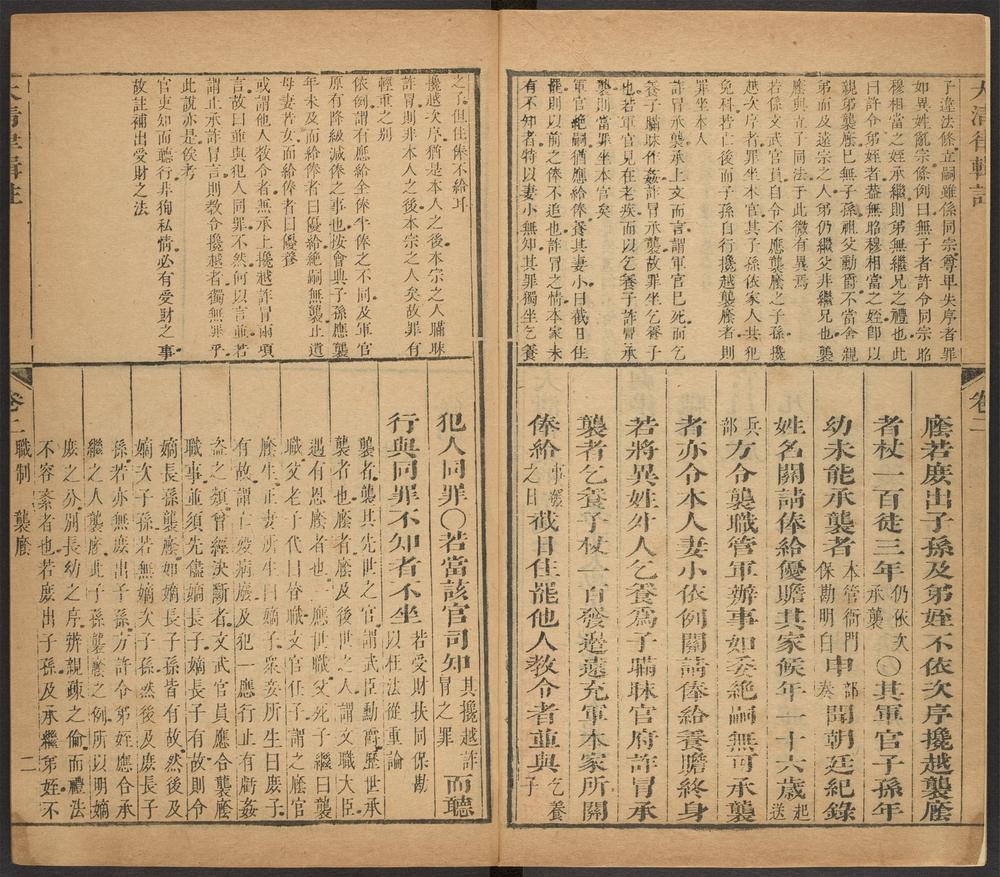 大清律輯註
子違法條立嗣雖係同宗尊卑失序者罪
如異姓亂宗條例曰無子者許令同宗昭
穆相當之姪承繼則弟無繼兄之禮也此
曰許令弟姪者蓋無昭穆相當之姪卽以
親弟襲廕已無子孫祖父勳爵不當舍親
弟而及遠宗之人弟仍繼父非繼兄也襲
廕與立子同法于此微有異焉
若係文武官員自令不應襲廕之子孫攙
越次序者罪坐本官其子孫依家人共犯
免科若亡後而子孫自行攙越襲廕者則
罪坐本人
詐冒承襲承上文而言謂軍官已死而乞
養子瞞昧作姦詐冒承襲故罪坐乞養子
也若軍官見在老疾而以乞養子詐冒承
襲則當罪坐本官矣
軍官絶嗣猶應給俸養其妻小曰截日住
罷則以前之俸不追也詐冒之情本家未
有不知者特以妻小無知其罪獨坐乞養
卷二
廕若庶出子孫及弟姪不依次序攙越襲廕
者杖一百徒三年仍依次承襲○其軍官子孫年
幼未能承襲者本管衙門保勘明白申部奏聞朝廷紀錄
姓名關請俸給優贍其家候年一十六歲起送
兵部方令襲職管軍辦事如委絶嗣無可承襲
者亦令本人妻小依例關請俸給養贍終身
若將異姓外人乞養爲子瞞昧官府詐冒承
襲者乞養子杖一百發邊遠充軍本家所關
俸給事發之日截日住罷他人教令者並與乞養子
之子但住俸不給耳
攙越次序猶是本人之後本宗之人瞞昧
詐冒則非本人之後本宗之人矣故罪有
輕重之别
依例謂有應給全俸半俸之不同及軍官
原有降級減俸之事也按會典子孫應襲
年未及而給俸者曰優給絶嗣無襲止道
母妻若女而給俸者曰優養
或謂他人教令者無承上攙越詐冒兩項
言故曰並與犯人同罪不然何以言並若
謂止承詐冒言則教令攙越者獨無罪乎
此說亦是俟考
官吏知而聽行非狥私情必有受財之事
故註補出受財之法
犯人同罪○若當該官司知其攙越詐冒之罪而聽
行與同罪不知者不坐若受財扶同保勘以枉法從重論
襲者襲其先世之官謂武臣勳爵歷世承
襲者也廕者廕及後世之人謂文職大臣
遇有恩廕者也應世職父死子繼曰襲
職父老子代曰替職文官任子謂之廕官
廕生正妻所生曰嫡子衆妾所生曰庶子
有故謂亡殁病廢及犯一應行止有虧姦
盗之類曾經決斷者文武官員應合襲廕
職事並須先儘嫡長子嫡長子有故則令
嫡長孫襲廕如嫡長子孫皆有故然後及
嫡次子孫若無嫡次子孫然後及庶長子
孫若亦無庶出子孫方許令弟姪應合承
繼之人襲廕此子孫襲廕之例所以明嫡
庶之分别長幼之序辨親疎之倫而禮法
不容紊者也若庶出子孫及承繼弟姪不
大清律輯註
卷二 職制 襲廕 二